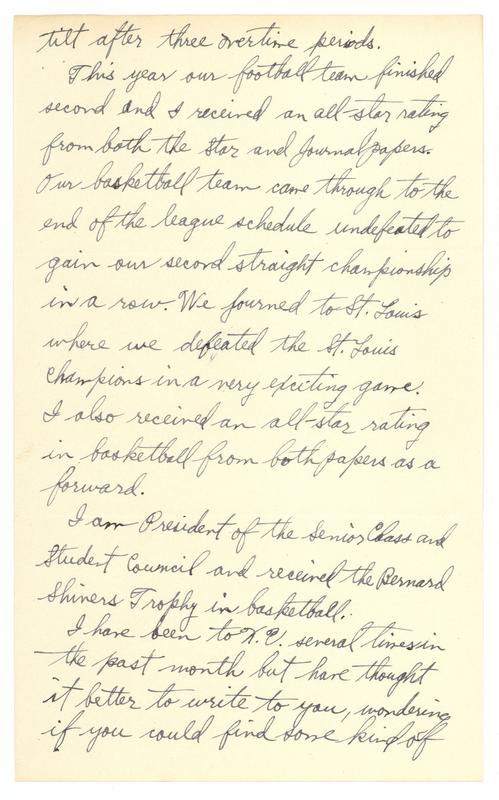 tilt after three overtime periods.
This year our football team finished
second and I received an all-star rating
from both the Star and Journal papers.
Our basketball team came through to the
end of the league schedule undefeated to
gain our second straight championship
in a row. We journed to St. Louis
where we defeated the St. Louis
champions in a very exciting game.
I also received an all-star rating
in basketball from both papers as a
forward.
I am President of the Senior Class and
Student Council and received the Bernard
Shiners Trophy in basketball.
I have been to K.C. several times in
the past month but have thought
it better to write to you, wondering
if you could find some kind of